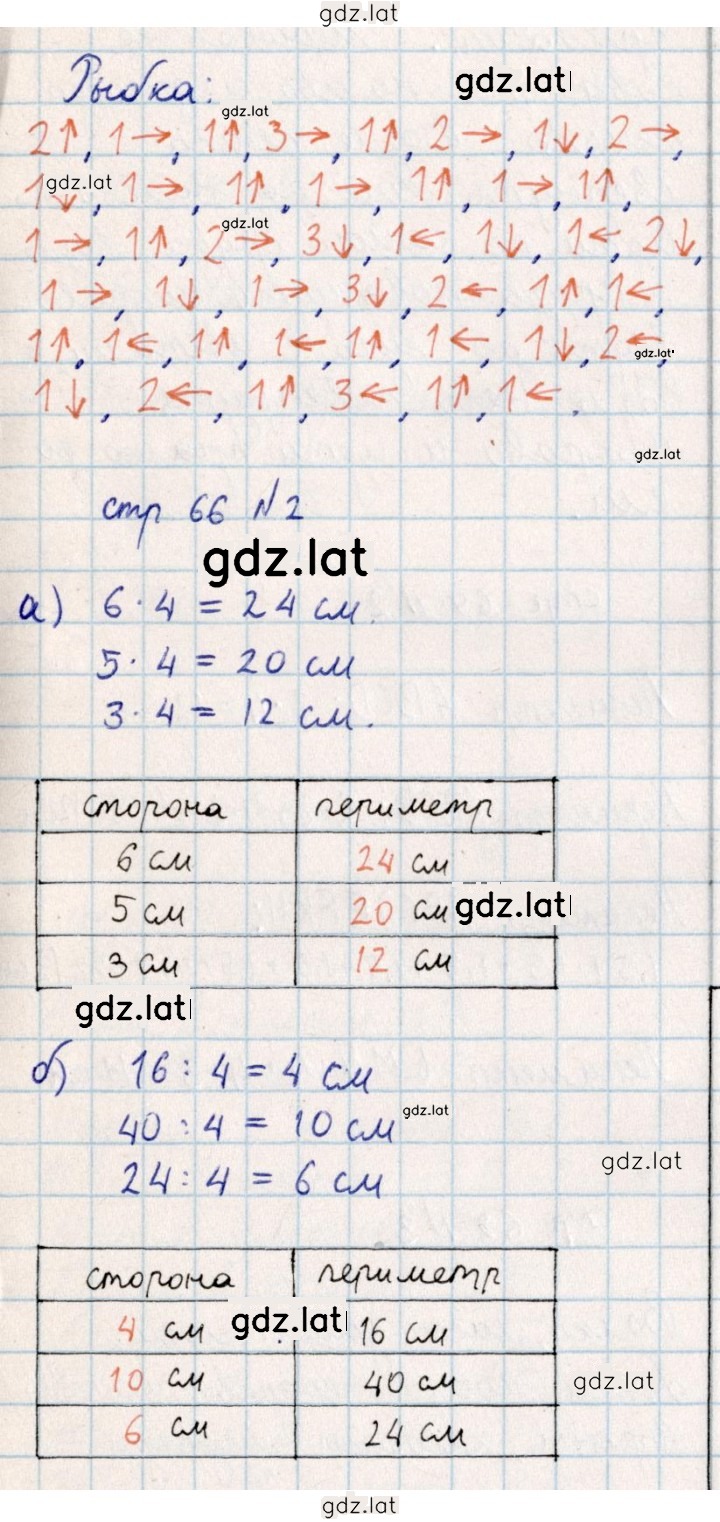 gdz.lat
Рыбка: gdz.lat
gdz.lat
2↑, 1→, 1↑, 3→, 1↑, 2→, 1↓, 2→,
1↓, 1→, 1↑, 1→, 1↑, 1→, 1↑,
gdz.lat
gdz.lat
1→, 1↑, 2→, 3↓, 1←, 1↓, 1←, 2↓,
1→, 1↓, 1→, 3↓, 2←, 1↑, 1←,
1↑, 1←, 1↑, 1←, 1↑, 1←, 1↓, 2←,
gdz.lat
1↓, 2←, 1↑, 3←, 1↑, 1←.
gdz.lat
стр 66 №2
gdz.lat
а) 6·4 = 24 см.
5·4 = 20 см
3·4 = 12 см.
сторона периметр
6 см 24 см
5 см 20 см gdz.lat
3 см 12 см
gdz.lat
б) 16 : 4 = 4 см
40 : 4 = 10 см gdz.lat
24 : 4 = 6 см gdz.lat
сторона периметр
4 см gdz.lat 16 см
10 см 40 см gdz.lat
6 см 24 см
gdz.lat